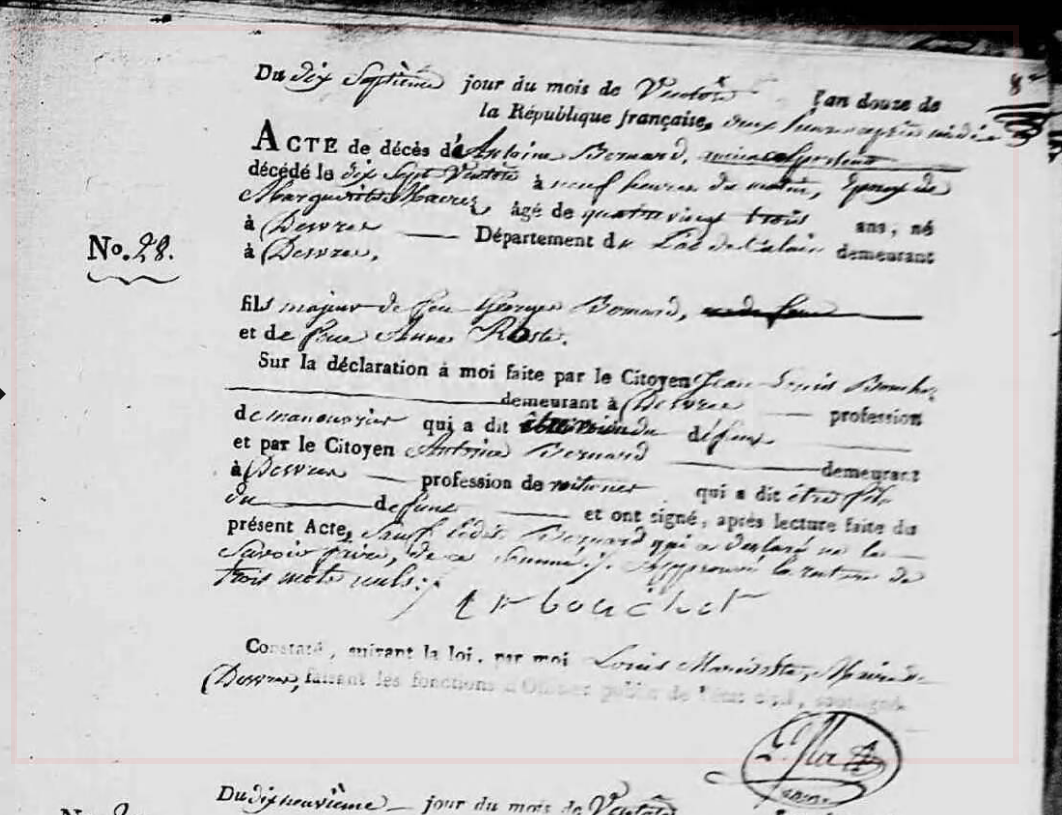 8
Du dix Septième jour du mois de Ventôse l'an douze de
la République française, deux heures après midi
ACTE de décès d'Antoine Bernard,
décédé le dix Sept Ventôse à neuf heures du matin, époux de
Marguerite âgé de quatre vingt trois ans, né
à Desvres Département du Pas de Calais demeurant
No. 28. à Desvres,
fils majeur de feu Georges Bernard,
et de feue Anne
Sur la déclaration à moi faite par le Citoyen Jean Louis
demeurant à Desvres profession
de manouvrier qui a dit du défunt
et par le Citoyen Antoine Bernard demeurant
à Desvres profession de voiturier qui a dit être fils
du défunt et ont signé, après lecture faite du
présent Acte, Sauf ledit Bernard qui a déclaré ne le
Savoir faire, de ce Sommé. Approuvé la rature de
trois mots nuls.
Constaté, suivant la loi, par moi Louis Maire de
Desvres, faisant les fonctions d'Officier public de l'état civil, soussigné.
Du dix neuvième jour du mois de Ventôse
No.